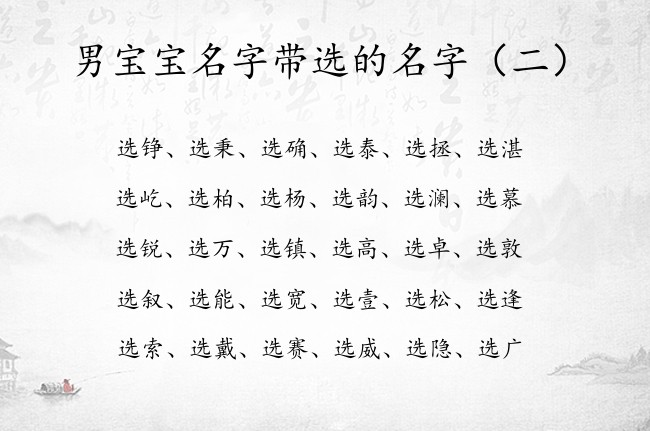 男宝宝名字带选的名字（二）
选铮、选秉、选确、选泰、选拯、选湛
选屹、选柏、选杨、选韵、选澜、选慕
选锐、选万、选镇、选高、选卓、选敦
选叙、选能、选宽、选壹、选松、选逢
选索、选戴、选赛、选威、选隐、选广